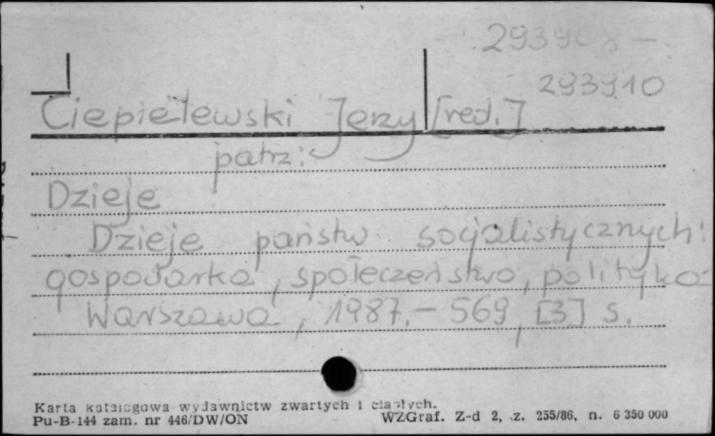 293908 –
293910
Ciepielewski Jerzy [red.]
patrz:
Dzieje
Dzieje państw socjalistycznych:
gospodarka, społeczeństwo, polityka
Warszawa, 1987. – 569, [3] s.
Karta katalogowa wydawnictw zwartych i ciągłych.
Pu-B-144 zam. nr 446/DW/ON
WZGraf. Z-d 2, z. 255/86, n. 6 350 000